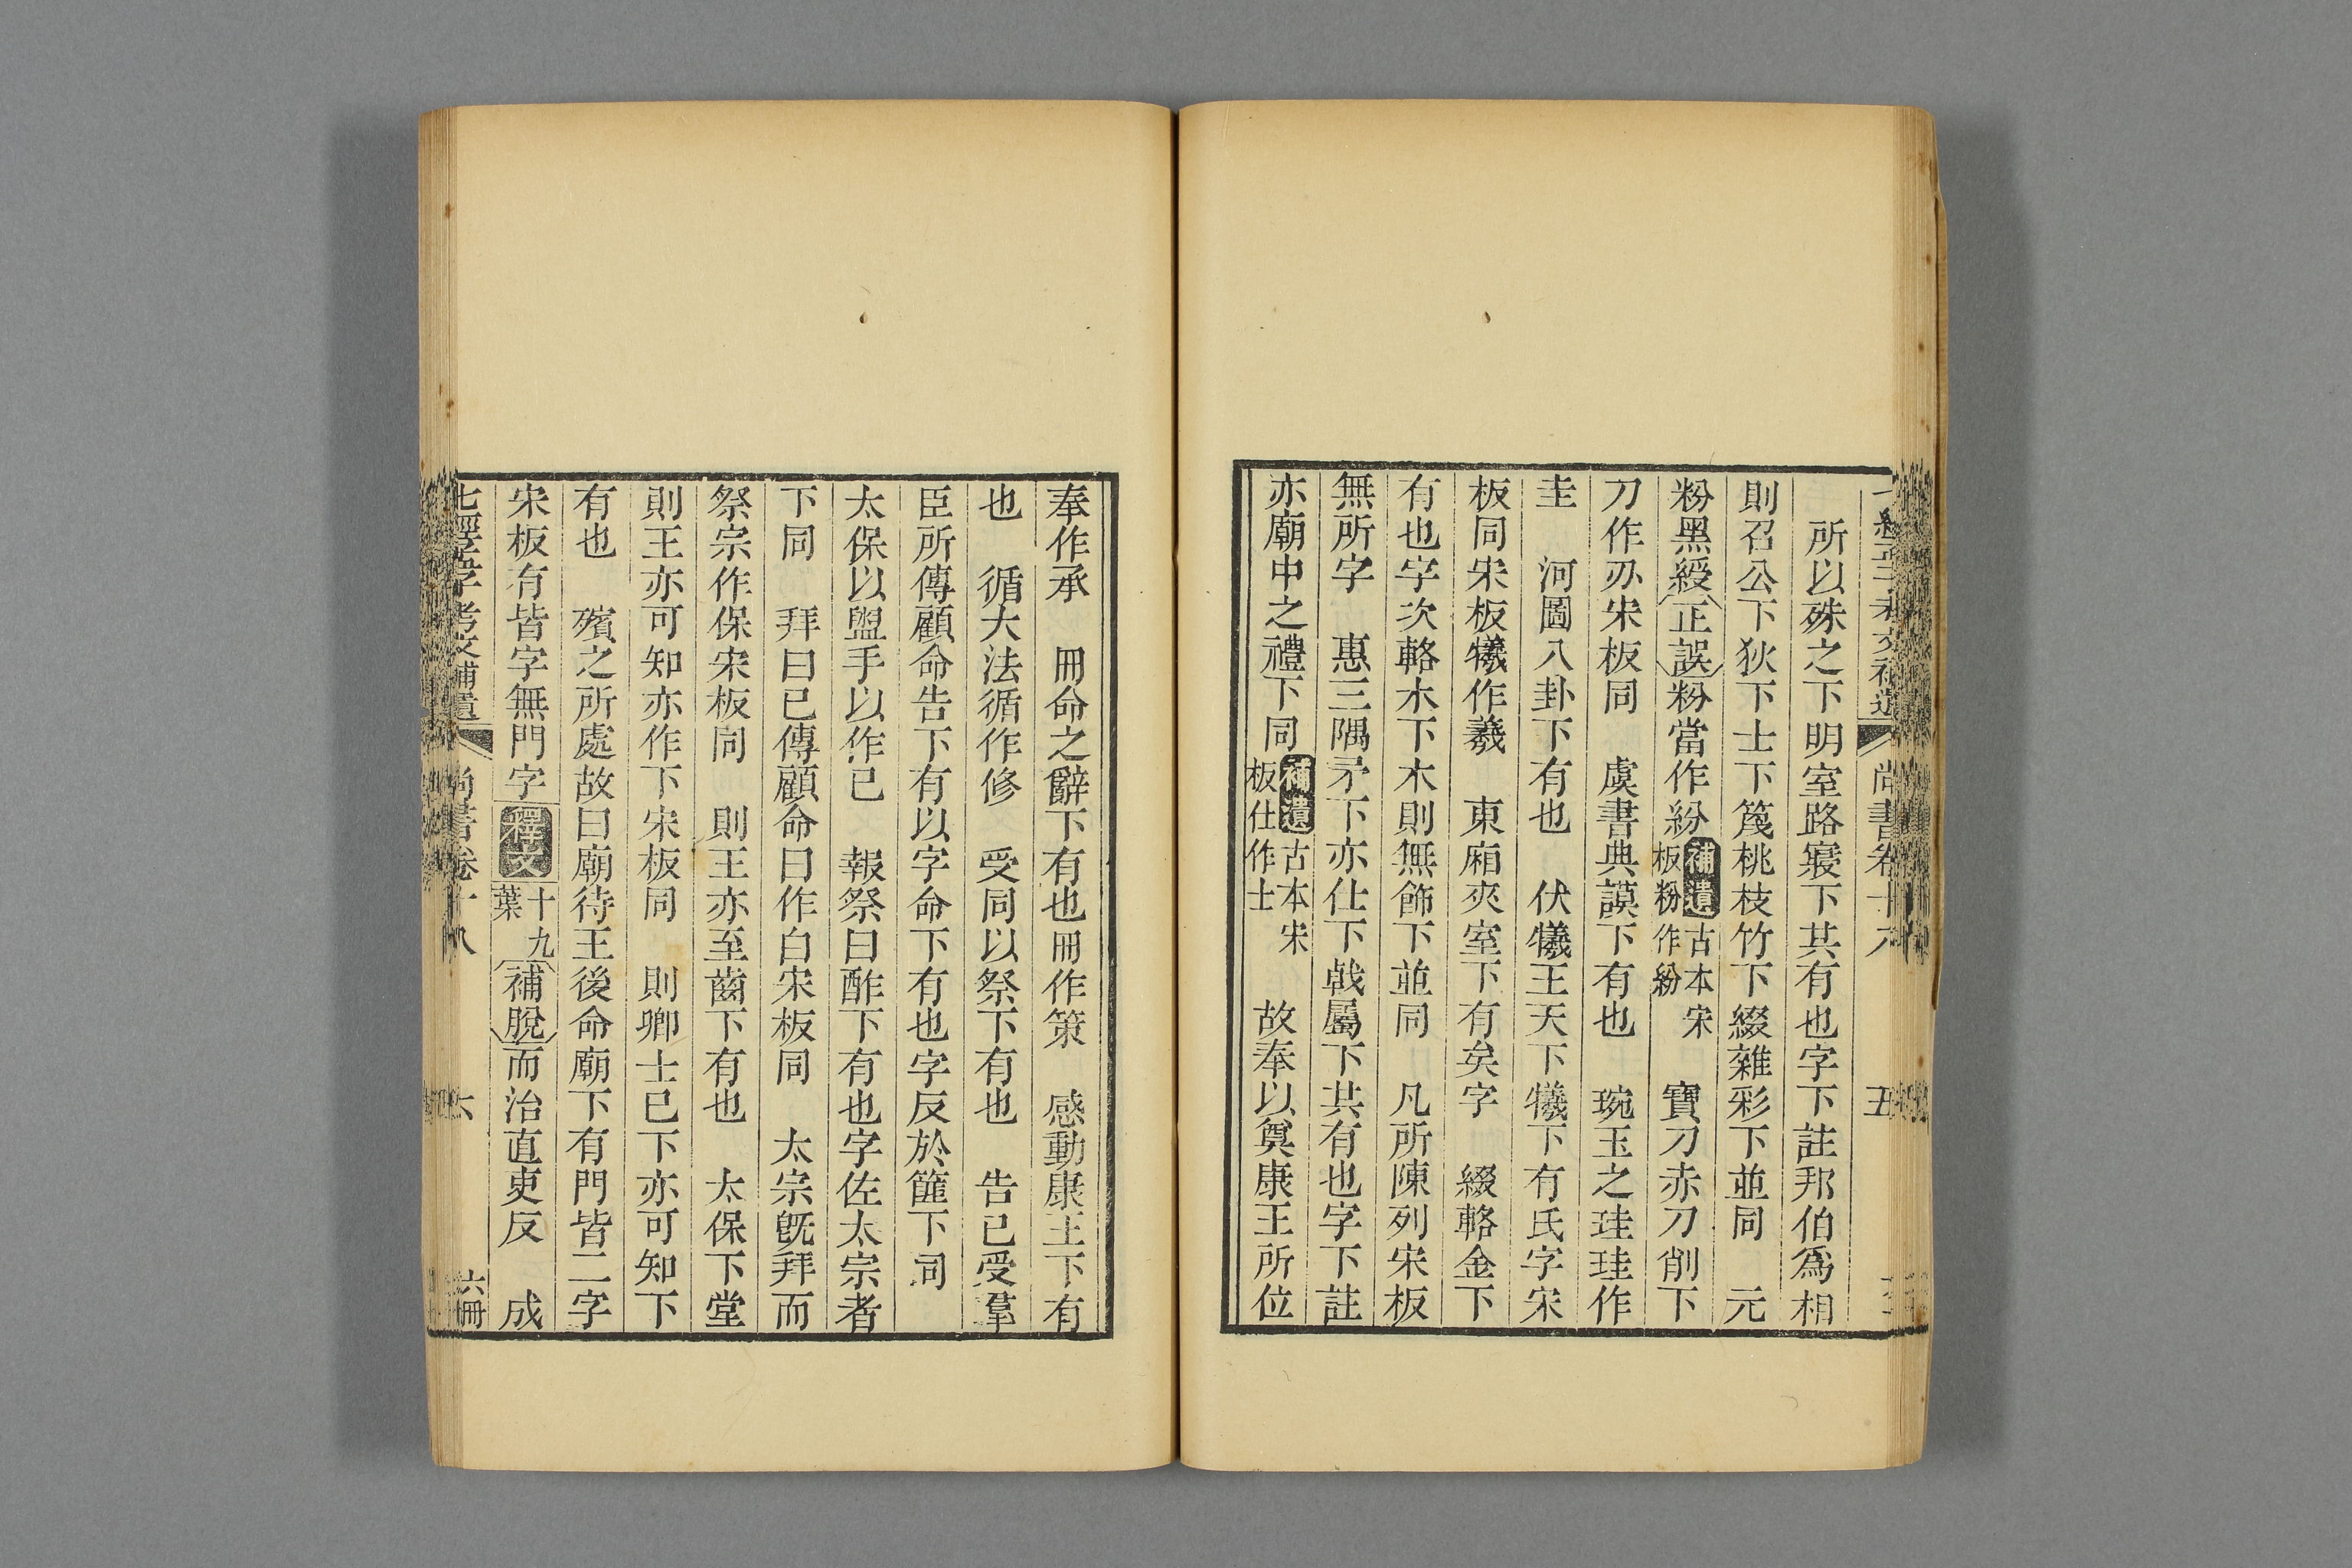 所以殊之下明室路寢下共有也字下註邦伯爲相
則召公下狄下士下篾桃枝竹下綴雜彩下並同　元
粉黑綬正誤粉當作紛補遺古本宋板粉作紛　寶刀赤刀削下
刀作刅宋板同　虞書典謨下有也　琬玉之珪珪作
圭　河圖八卦下有也　伏犧王天下犧下有氏字宋
板同宋板犧作羲　東廂夾室下有矣字　綴輅金下
有也字次輅木下木則無飾下並同　凡所陳列宋板
無所字　惠三隅矛下亦仕下戟屬下共有也字下註
亦廟中之禮下同補遺古本宋板仕作士　故奉以奠康王所位
奉作承　冊命之辭下有也冊作策　感動康王下有
也　循大法循作修　受同以祭下有也　告已受羣
臣所傳顧命告下有以字命下有也字反於篚下同
太保以盥手以作已　報祭曰酢下有也字佐太宗者
下同　拜曰已傳顧命曰作白宋板同　太宗旣拜而
祭宗作保宋板同　則王亦至齒下有也　太保下堂
則王亦可知亦作下宋板同　則卿士已下亦可知下
有也　殯之所處故曰廟待王後命廟下有門皆二字
宋板有皆字無門字釋文十九葉補脫而治直吏反　成
尚書卷十八　六　六冊